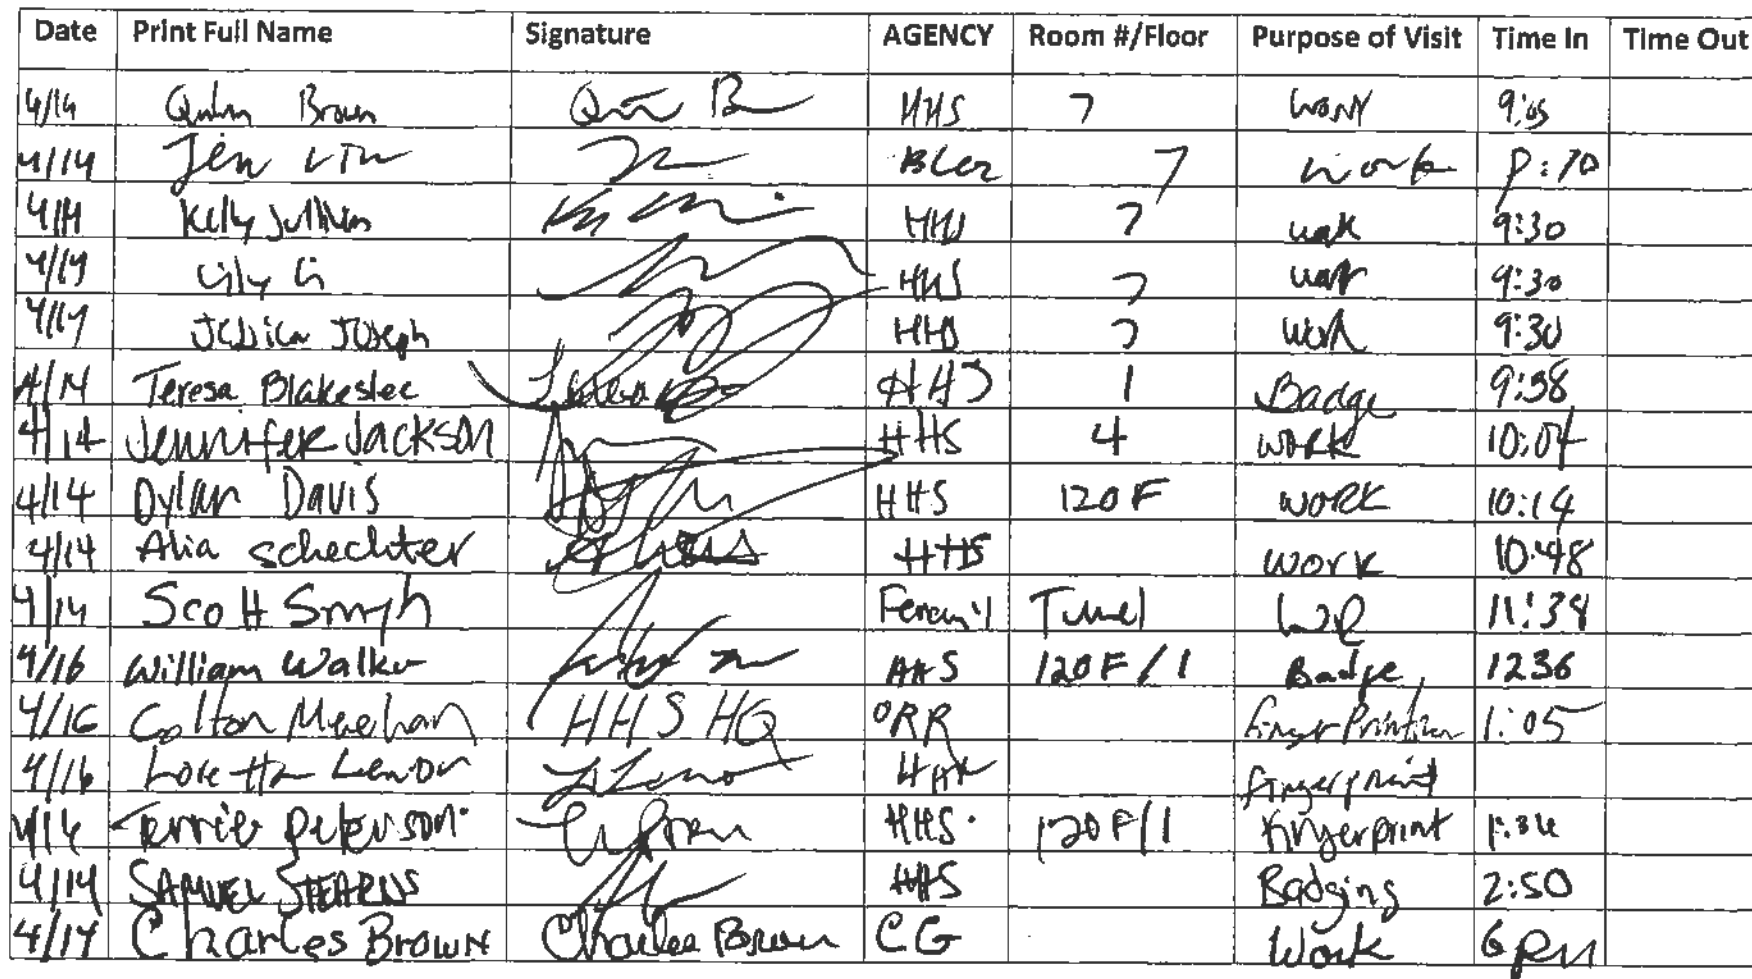 Date Print Full Name Signature AGENCY Room #/Floor Purpose of Visit Time In Time Out
4/14 Quinn Brown HHS 7 work 9:05
4/14 Jen 7 work
4/14 Kelly Sullivan HHS 7 work 9:30
4/14 Lily Li HHS 7 work 9:30
4/14 Jessica Joseph HHS 7 work 9:30
4/14 Teresa Blakeslee HHS 1 Badge 9:38
4/14 Jennifer Jackson HHS 4 WORK 10:04
4/14 Dylan Davis HHS 120F WORK 10:14
4/14 Alia Schechter HHS work 10:48
4/14 Scott Smyh 11:38
4/16 William Walker HHS 120F/1 Badge 1236
4/16 Colton Meehan HHS HQ ORR 1:05
4/16 Loretta Lenoir fingerprint
4/16 Terrie Peterson HHS 120F/1 Fingerprint
4/14 SAMUEL STEARNS HHS Badging 2:50
4/14 Charles Brown Charles Brown CG Work 6pm